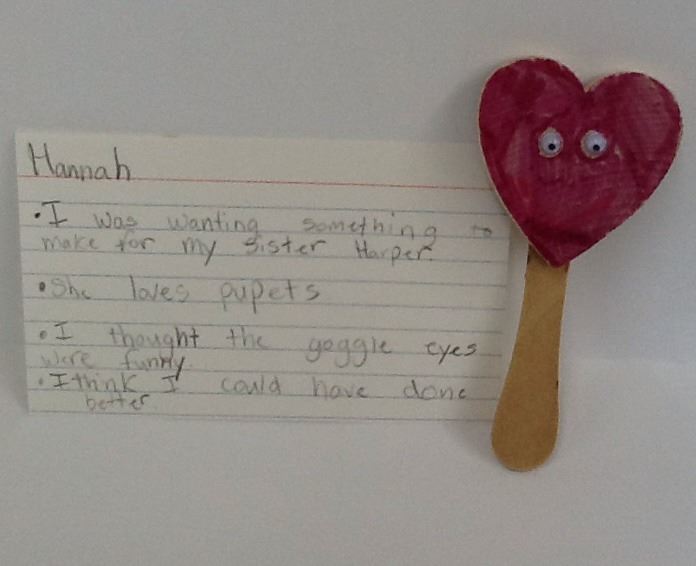 Hannah
• I was wanting something to
make for my sister Harper.
• She loves pupets
• I thought the goggle eyes
were funny.
• I think I could have done
better.